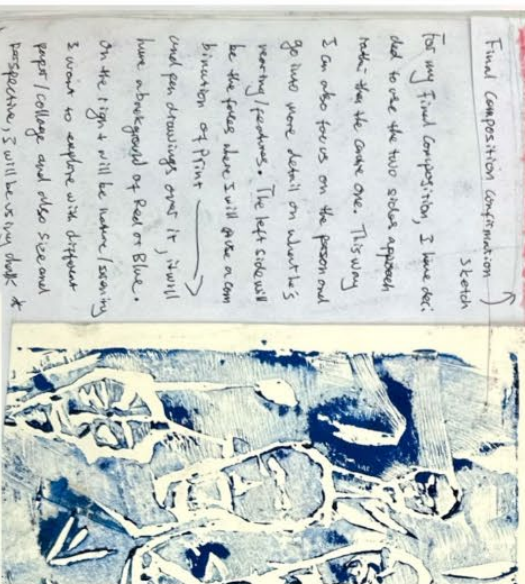 Final Composition Confirmation
sketch
For my final composition, I have deci-
ded to use the two sides approach
rather than the centre one. This way
I can also focus on the person and
go into more detail on what he's
wearing/features. The left side will
be the faces where I will have a com
bination of Print
and pen drawings over it, it will
have a background of Red or Blue.
On the right will be nature/scenery
I want to explore with different
paper/collage and also size and
perspective, I will be using chalk *